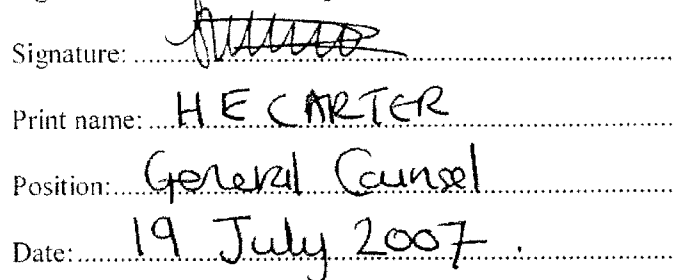 Signature:
Print name: H E CARTER
Position: General Counsel
Date: 19 July 2007.